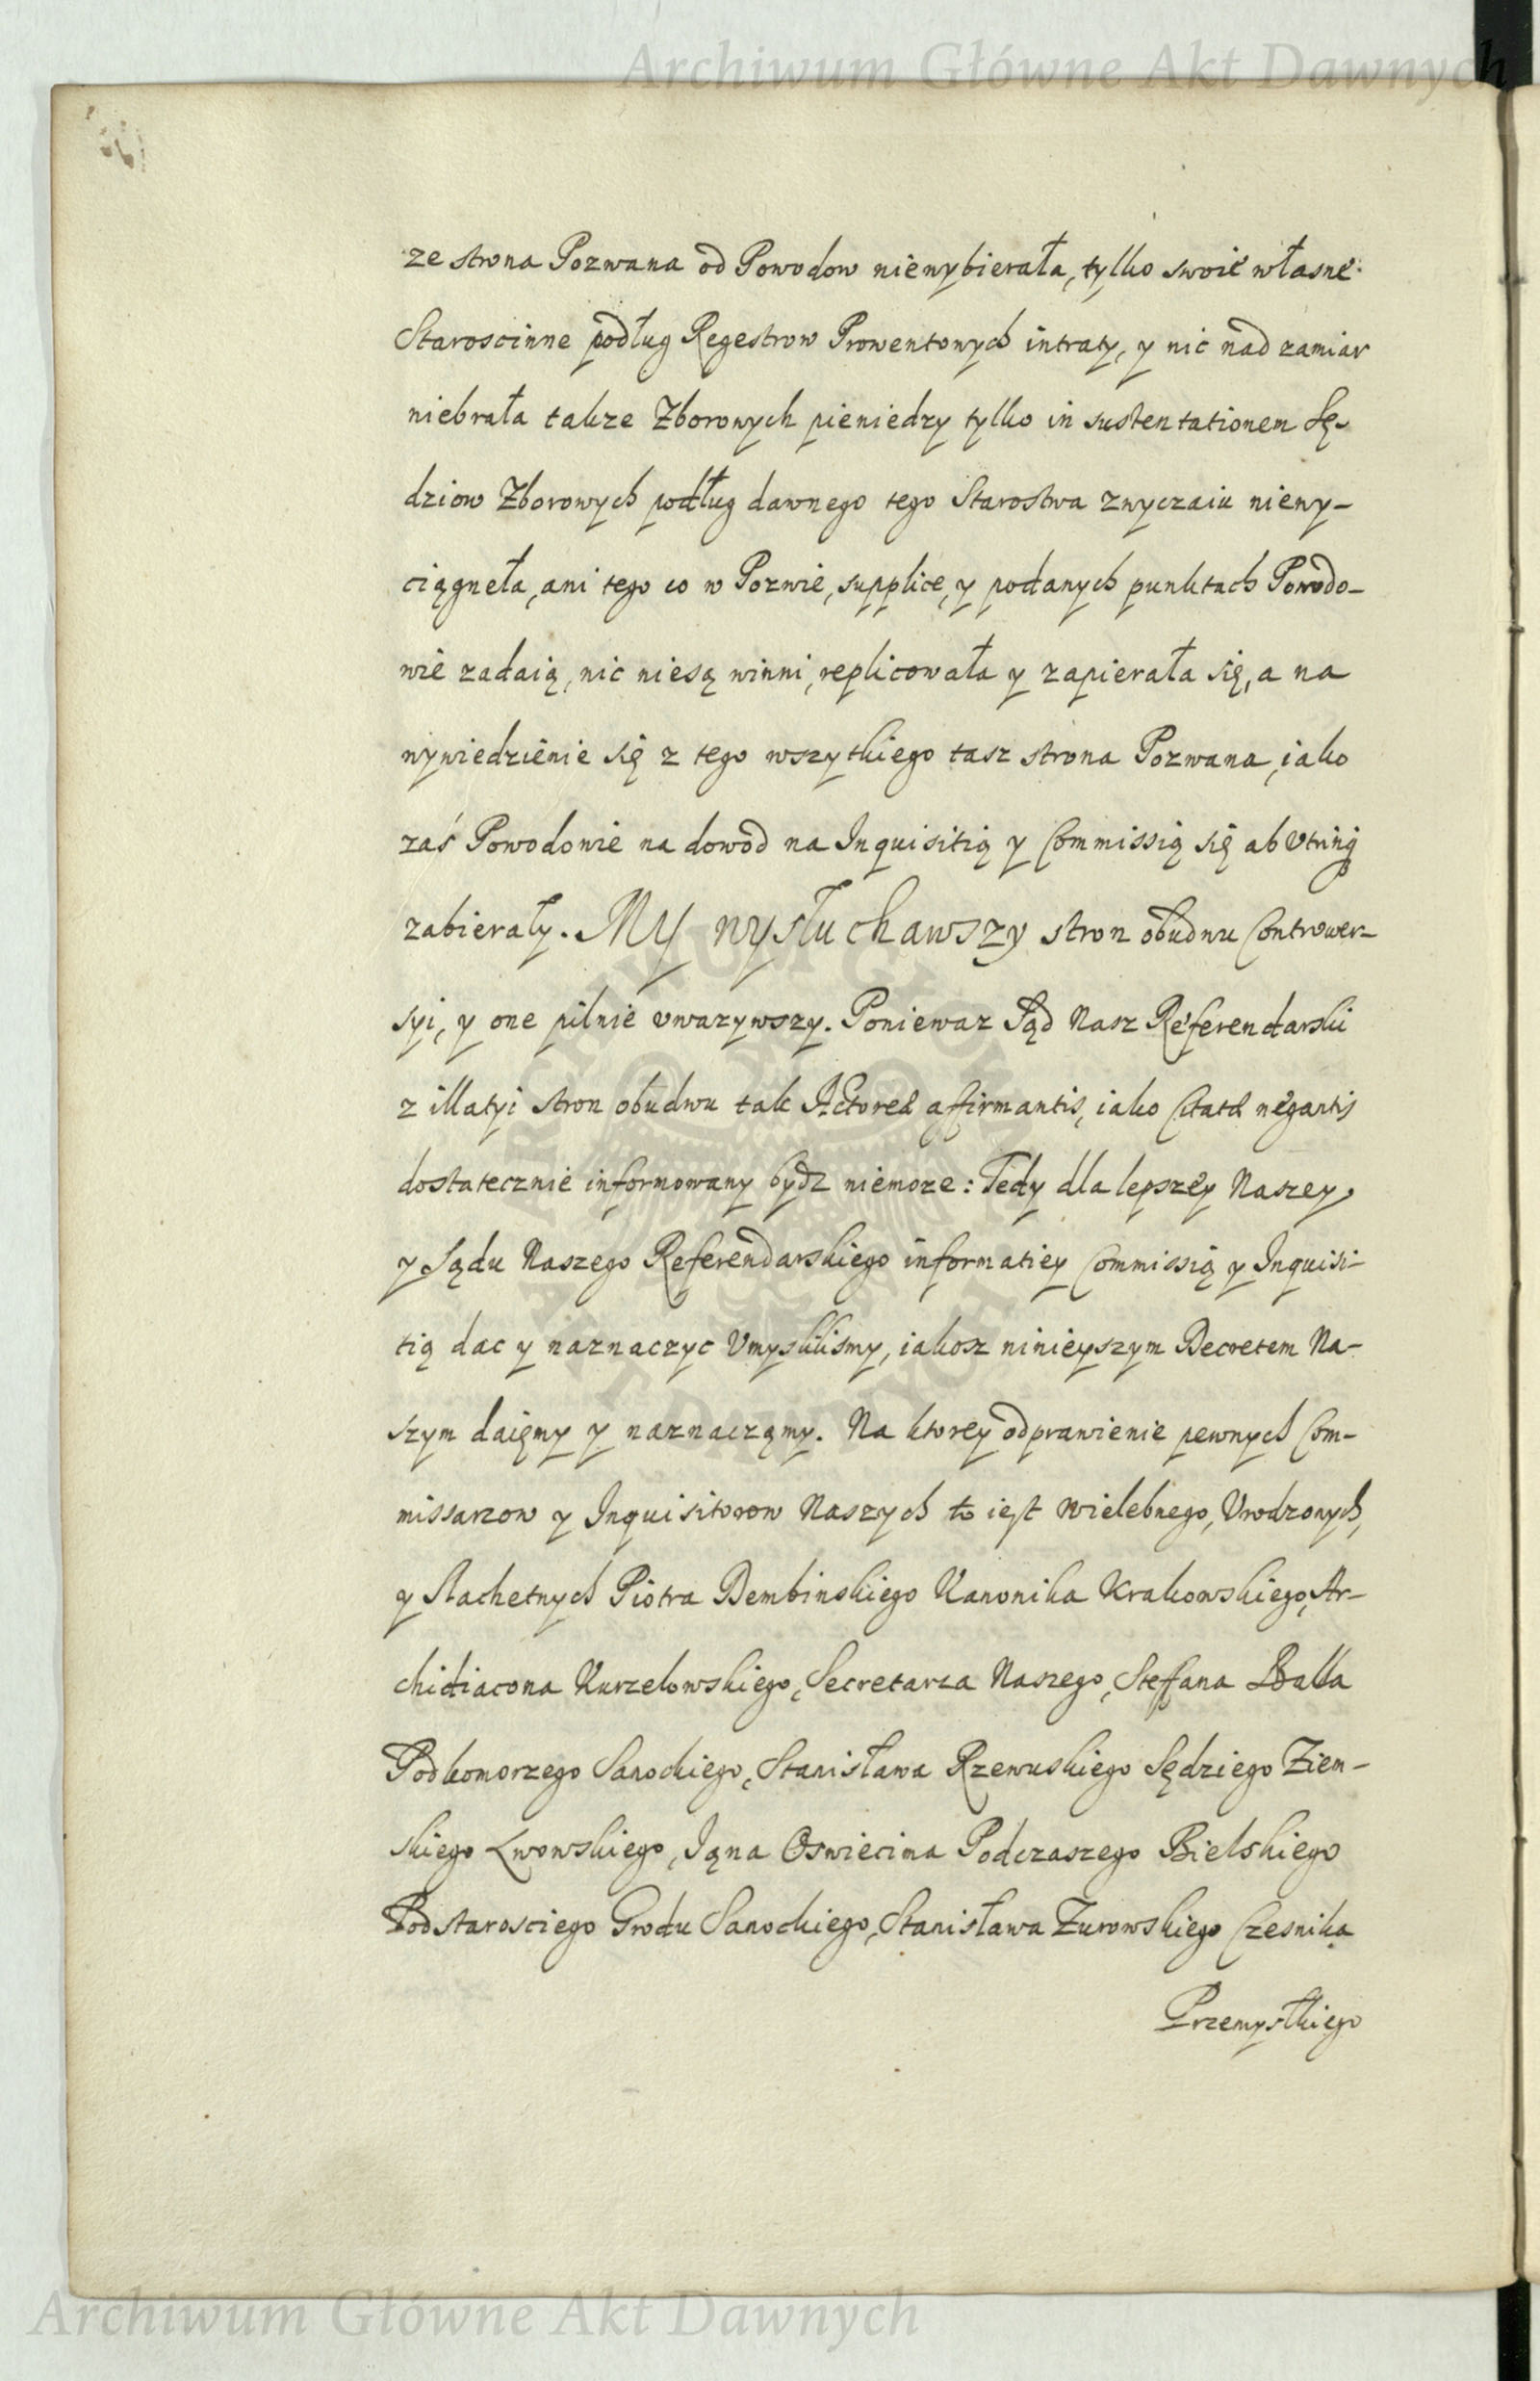 Archiwum Główne Akt Dawnych
ze strona Pozwana od Powodow niewybierała, tylko swoie własne
Staroscinne podług Regestrow Prowentowych intraty, y nic nad zamiar
niebrała takze Zborowych pieniedzy tylko in sustentationem Sę-
dziow Zborowych podług dawnego tego Starostwa zwyczaiu niewy-
ciągneła, ani tego co w Pozwie, supplice, y podanych punktach Powodo-
wie zadaią, nic niesą winni, replicowała y zapierała się, a na
wywiedzienie się z tego wszytkiego tasz strona Pozwana, iako
zaś Powodowie na dowod na Inquisitią y Commissią się ab Utrinq
zabierały. My wysłuchawszy stron obudwu Contrower-
syi, y one pilnie uwazywszy. Poniewaz Sąd Nasz Referendarski
z illatyi stron obudwu tak Actorea affirmantis, iako Citatae negantis
dostatecznie informowany bydz niemoze: Tedy dla lepszey Naszey,
y Sądu Naszego Referendarskiego informatiey Commissią y Inquisi-
tią dac y naznaczyc Umyslilismy, iakosz ninieyszym Decretem Na-
szym daięmy y naznaczamy. Na ktorey odprawienie pewnych Com-
missarzow y Inquisitorow Naszych to iest Wielebnego, Urodzonych,
y Slachetnych Piotra Dembinskiego Kanonika Krakowskiego, Ar-
chidiacona Kurzelowskiego, Secretarza Naszego, Steffana Balla
Podkomorzego Sanockiego, Stanisława Rzewuskiego Sędziego Ziem-
skiego Lwowskiego, Iąna Oswiecima Podczaszego Bielskiego
Podstarosciego Grodu Sanockiego, Stanisława Zurowskiego Czesnika
Przemyslkiego
Archiwum Główne Akt Dawnych